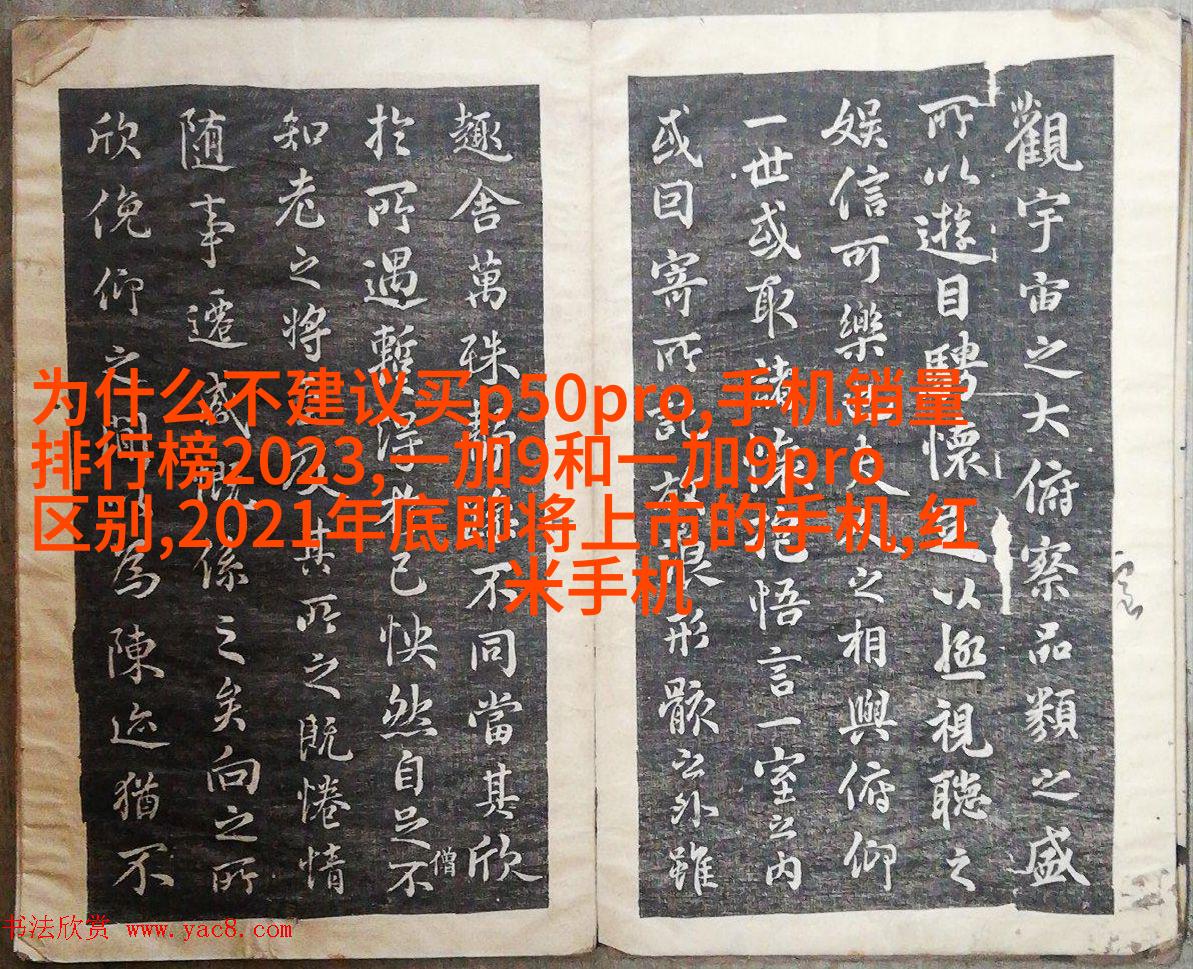 觀宇宙之大俯察品類之盛
所以遊目騁懷足以極視聽之
娛信可樂也夫人之相與俯仰
一世或取諸懷抱悟言一室之內
或因寄所託放浪形骸之外雖
趣舍萬殊靜躁不同當其欣
於所遇暫得於己怏然自足不
僧
知老之將至及其所之既惓情
随事遷感慨係之矣向之所
欣俛仰之間以為陳迹猶不
为什么不建议买p50pro,手机销量
排行榜2023,一加9和一加9pro
区别,2021年底即将上市的手机,红
米手机
书法欣赏 www.yac8.com